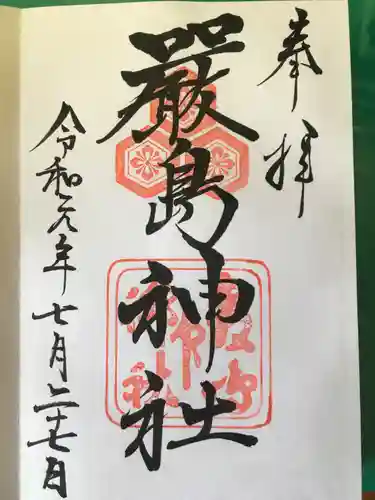 奉拝
嚴島神社
令和元年七月二十七日